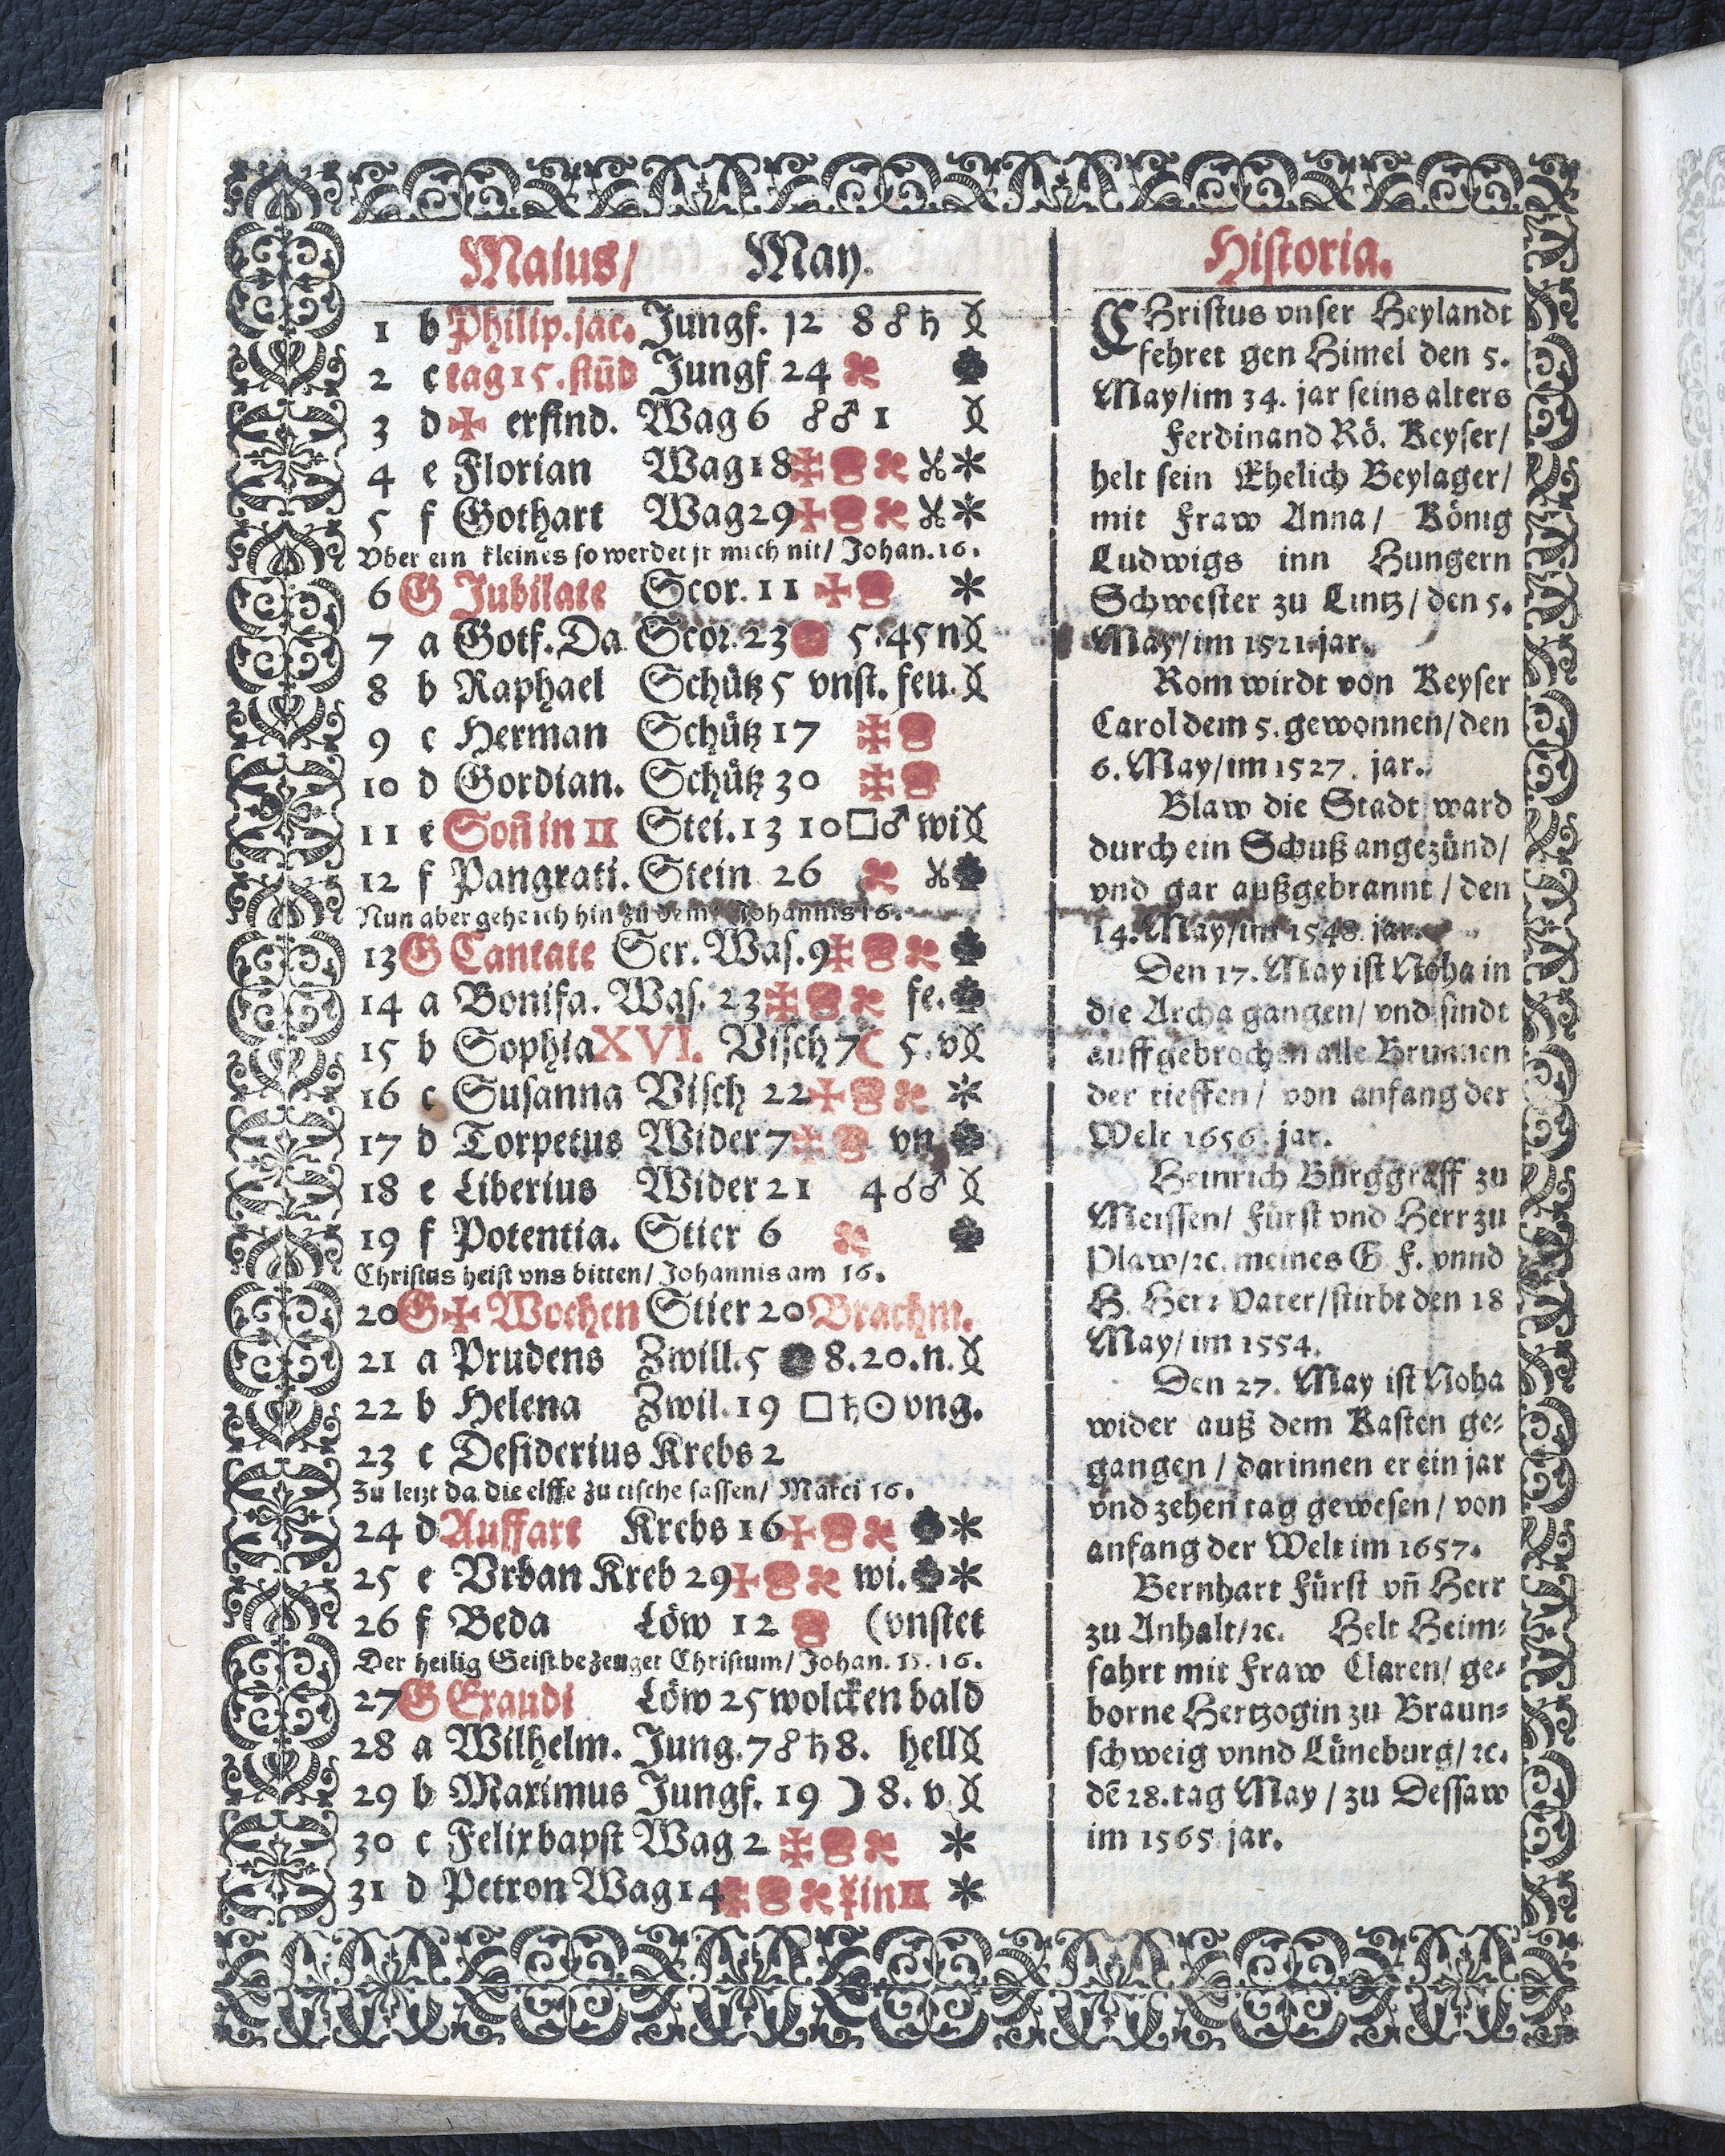 Maius/ May.
1 b Philip.jac. Jungf. 12 8 ☍ ♄
2 c tag 15. stūd Jungf 24
3 d ✠ erfind. Wag 6 ☍ ♂ 1
4 e Florian Wag 18 ✠ *
5 f Gothart Wag 29 ✠ *
Vber ein kleines so werdet jr mich nit/ Johan. 16.
6 G Jubilate Scor. 11 ✠ *
7 a Gotf. Da Scor. 23 5. 45 n
8 b Raphael Schütz 5 vnst. feu.
9 c Herman Schütz 17 ✠
10 d Gordian. Schütz 30 ✠
11 e Soñ in ♊ Stei. 13 10 □ ♂ wi
12 f Pangrati. Stein 26
Nun aber gehe ich hin zu dem/ Johannis 16.
13 G Cantate Ser. Was. 9 ✠
14 a Bonifa. Was. 23 ✠ fe.
15 b Sophia XVI. Visch 7 ☾ 5. v
16 c Susanna Visch 22 ✠ *
17 d Torpetus Wider 7 ✠ vn
18 e Liberius Wider 21 4 ☌ ♂
19 f Potentia. Stier 6
Christus heist vns bitten/ Johannis am 16.
20 G ✠ Wochen Stier 20 Brachm.
21 a Prudens Zwill. 5 ● 8. 20. n.
22 b Helena Zwil. 19 □ ♄ ☉ vng.
23 c Desiderius Krebs 2
Zu letzt da die elffe zu tische sassen/ Marci 16.
24 d Auffart Krebs 16 ✠ *
25 e Vrban Kreb 29 ✠ wi. *
26 f Beda Löw 12 (vnstet
Der heilig Geist bezeuget Christum/ Johan. 15. 16.
27 G Exaudi Löw 25 wolcken bald
28 a Wilhelm. Jung. 7 ☍ ♄ 8. hell
29 b Maximus Jungf. 19 ☽ 8. v.
30 c Felix bapst Wag 2 ✠ *
31 d Petron Wag 14 ✠ ☿ in ♊ *
Historia.
CHristus vnser Heylandt
fehret gen Himel den 5.
May/ im 34. jar seins alters
Ferdinand Rö. Keyser/
helt sein Ehelich Beylager/
mit Fraw Anna/ König
Ludwigs inn Hungern
Schwester zu Lintz/ den 5.
May/ im 1521. jar.
Rom wirdt von Keyser
Carol dem 5. gewonnen/ den
6. May/ im 1527. jar.
Blaw die Stadt ward
durch ein Schuß angezünd/
vnd gar außgebrannt/ den
14. May/ im 1548. jar.
Den 17. May ist Noha in
die Archa gangen/ vnd sindt
auffgebrochen alle Brunnen
der tieffen/ von anfang der
Welt 1656. jar.
Heinrich Burggraff zu
Meissen/ Fürst vnd Herr zu
Plaw/ ꝛc. meines G. F. vnnd
H. Herꝛ Vater/ stirbt den 18
May/ im 1554.
Den 27. May ist Noha
wider auß dem Kasten ge⸗
gangen/ darinnen er ein jar
vnd zehen tag gewesen/ von
anfang der Welt im 1657.
Bernhart Fürst vñ Herr
zu Anhalt/ ꝛc. Helt Heim⸗
fahrt mit Fraw Claren/ ge⸗
borne Hertzogin zu Braun⸗
schweig vnnd Lüneburg/ ꝛc.
dē 28. tag May/ zu Dessaw
im 1565. jar.